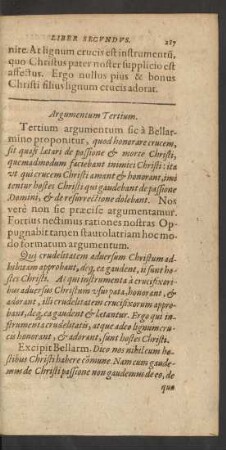 LIBER SECVNDVS. 287
nire. At lignum crucis est instrumentũ,
quo Christus pater noster supplicio est
affectus. Ergo nullus pius & bonus
Christi filius lignum crucis adorat.
Argumentum Tertium.
Tertium argumentum sic à Bellar-
mino proponitur, quod honorare crucem,
sit quasi lætari de passione & morte Christi,
quemadmodum faciebant inimici Christi: ita
vt qui crucem Christi amant & honorant, imi
tentur hostes Christi qui gaudebant de passione
Domini, & de resurrectione dolebant. Nos
verè non sic præcise argumentamur.
Fortius nectimus rationes nostras Op-
pugnabit tamen staurolatriam hoc mo-
do formatum argumentum.
Qui crudelitatem aduersum Christum ad-
hibitam approbant, deq́, ea gaudent, ii sunt ho-
stes Christi. At qui instrumenta à crucifixori-
bus aduersus Christum vsurpata, honorant, &
adorant, illi crudelitatem crucifixorum appro-
bant, deq́, ea gaudent & lætantur. Ergo qui in-
strumenta crudelitatis, atque adeo lignum cru-
cis honorant, & adorant, sunt hostes Christi.
Excipit Bellarm. Dico nos nihil cum ho-
stibus Christi habere cõmune. Nam cum gaude-
mus de Christi passione non gaudemus de eo, de
quo